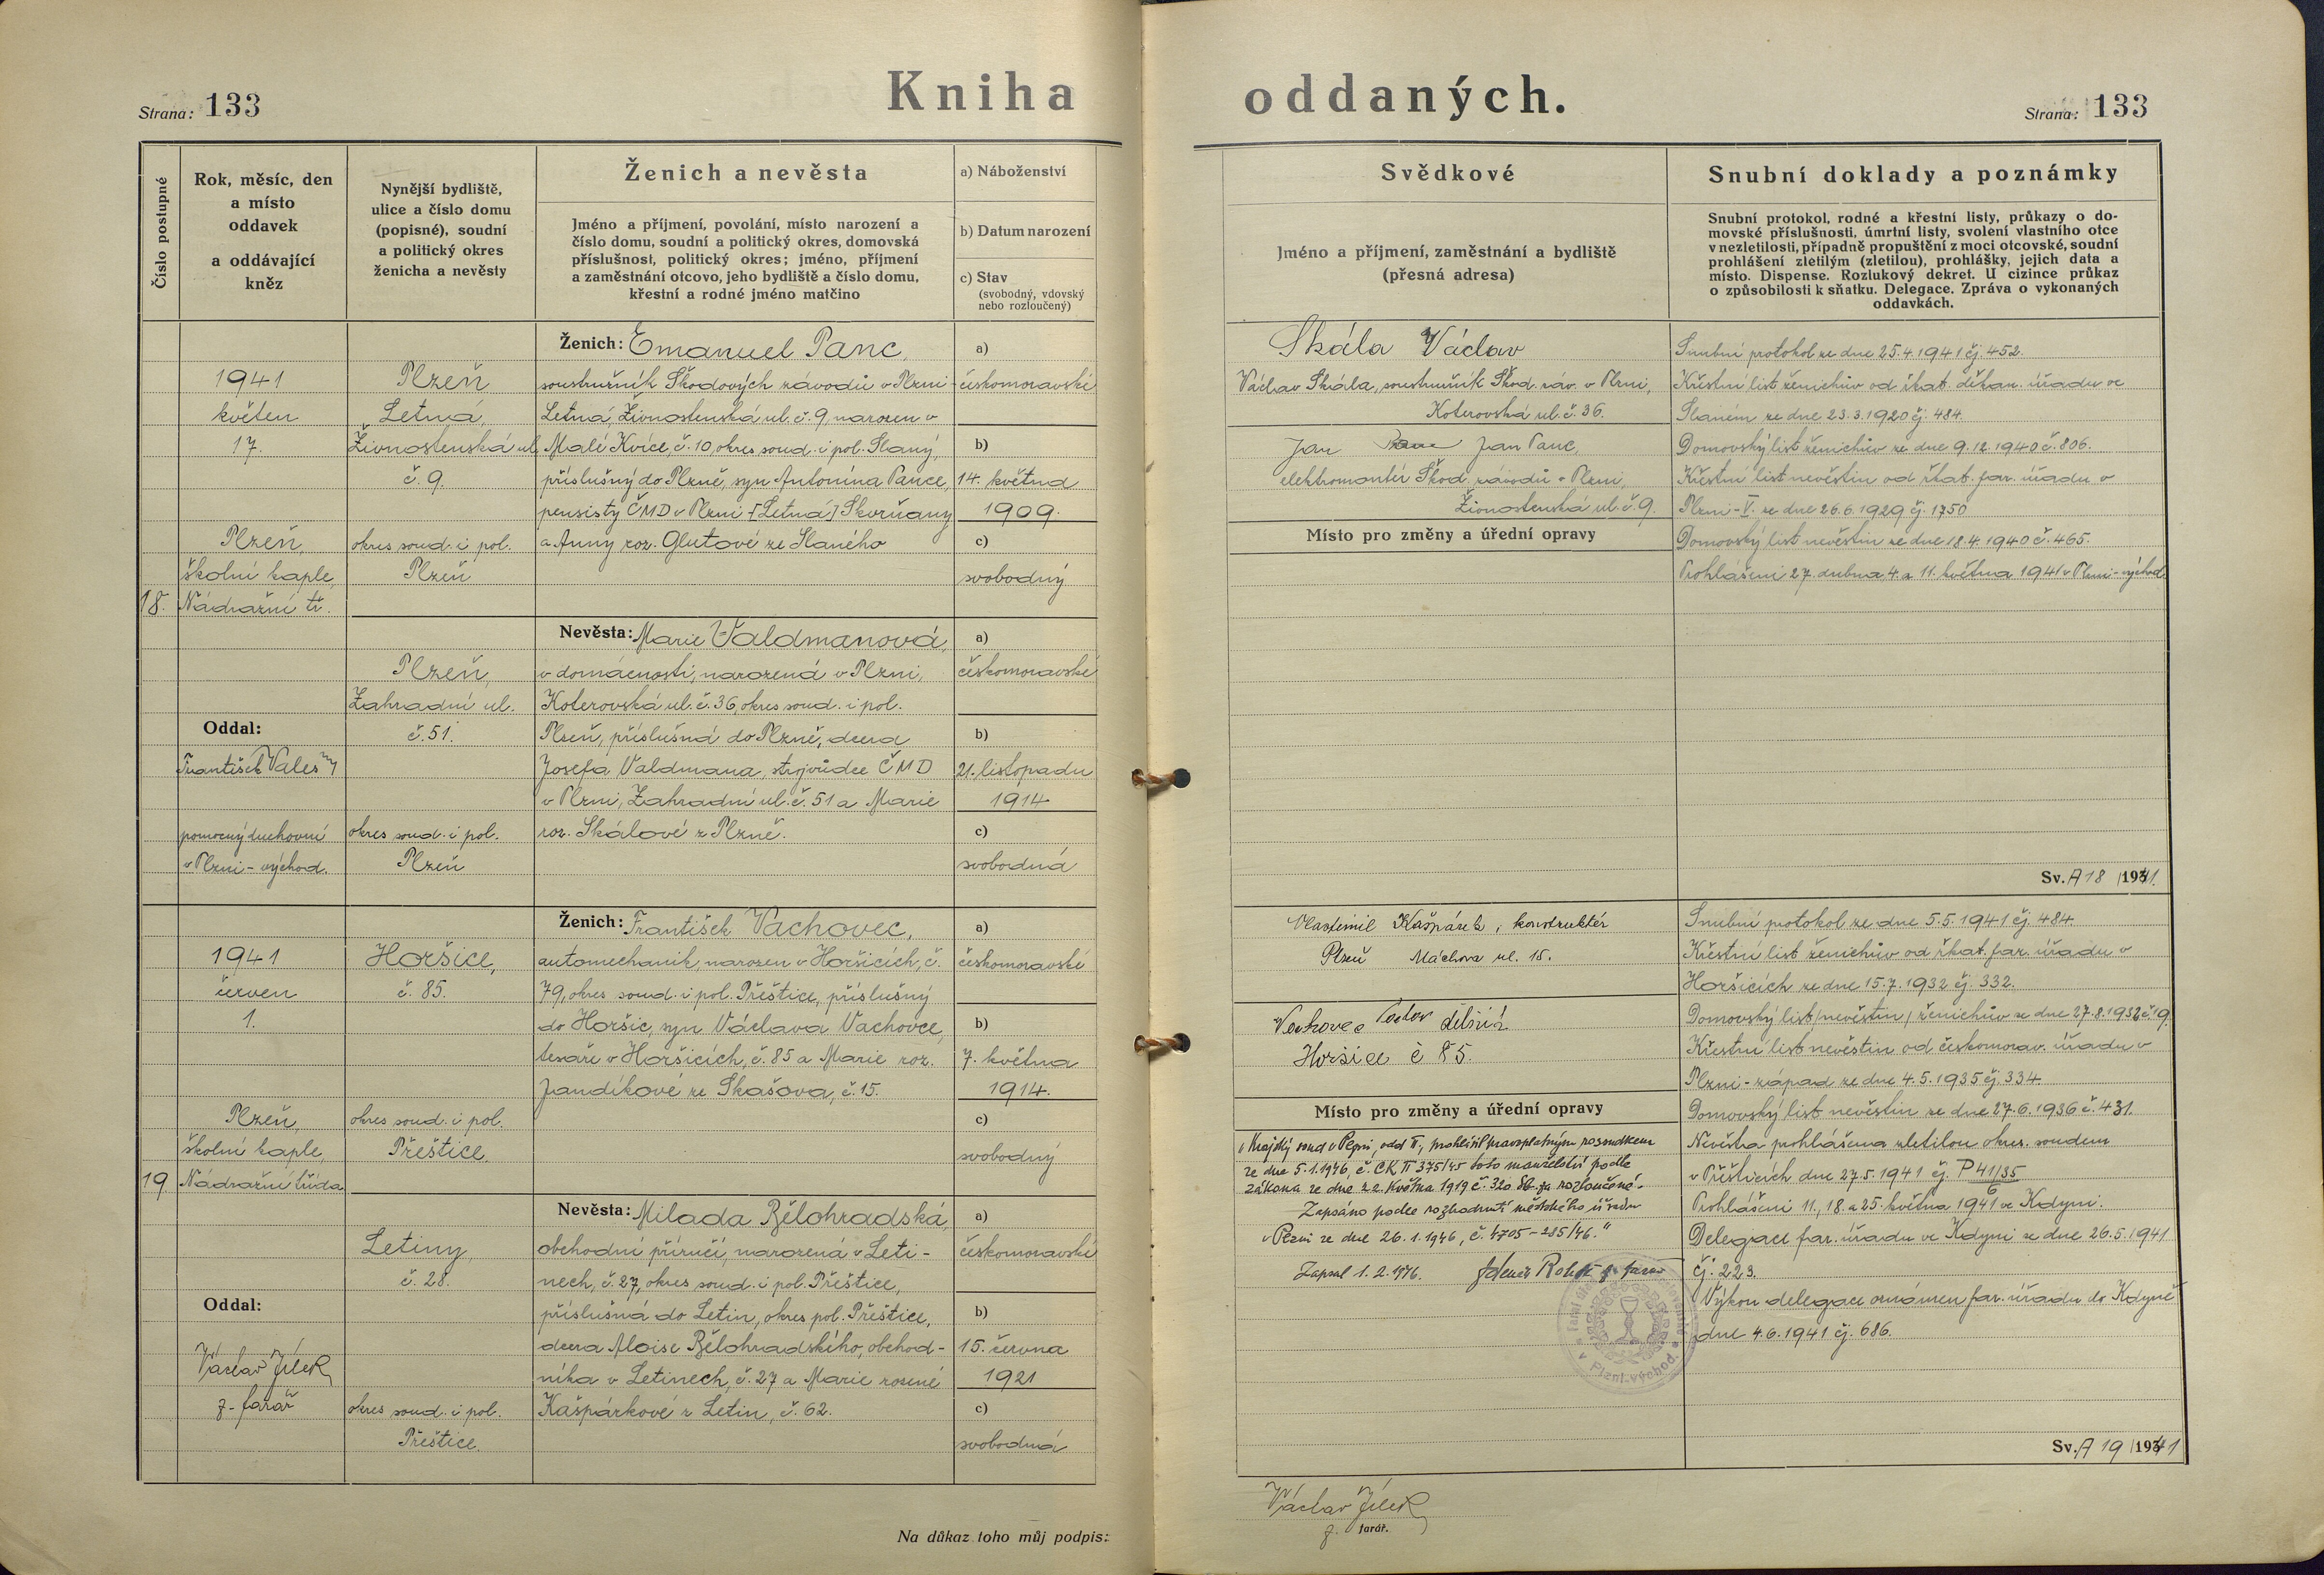 Kniha oddaných.
Strana: 133
Strana: 133
Číslo postupné
Rok, měsíc, den
a místo
oddavek
a oddávající
kněz
Nynější bydliště,
ulice a číslo domu
(popisné), soudní
a politický okres
ženicha a nevěsty
Ženich a nevěsta
Jméno a příjmení, povolání, místo narození a
číslo domu, soudní a politický okres, domovská
příslušnost, politický okres; jméno, příjmení
a zaměstnání otcovo, jeho bydliště a číslo domu,
křestní a rodné jméno matčino
a) Náboženství
b) Datum narození
c) Stav
(svobodný, vdovský
nebo rozloučený)
Svědkové
Jméno a příjmení, zaměstnání a bydliště
(přesná adresa)
Snubní doklady a poznámky
Snubní protokol, rodné a křestní listy, průkazy o do-
movské příslušnosti, úmrtní listy, svolení vlastního otce
v nezletilosti, případně propuštění z moci otcovské, soudní
prohlášení zletilým (zletilou), prohlášky, jejich data a
místo. Dispense. Rozlukový dekret. U cizince průkaz
o způsobilosti k sňatku. Delegace. Zpráva o vykonaných
oddavkách.
18.
1941
květen
17.
Plzeň,
školní kaple,
Nádražní tř.
Oddal:
František Vales
pomocný duchovní
v Plzni-východ.
Plzeň
Letná,
Živnostenská ul.
č. 9.
okres soud. i pol.
Plzeň
Plzeň,
Zahradní ul.
č. 51.
okres soud. i pol.
Plzeň
Ženich: Emanuel Panc,
soustružník Škodových závodů v Plzni-
Letná, Živnostenská ul. č. 9, narozen v
Malé Kvíce, č. 10, okres soud. i pol. Slaný,
příslušný do Plzně, syn Antonína Pance,
pensisty ČMD v Plzni [Letná] Skvrňany
a Anny roz. Glutové ze Slaného
Nevěsta: Marie Valdmanová,
v domácnosti, narozená v Plzni,
Koterovská ul. č. 36, okres soud. i pol.
Plzeň, příslušná do Plzně, dcera
Josefa Valdmana, strojvůdce ČMD
v Plzni, Zahradní ul. č. 51 a Marie
roz. Skálové z Plzně.
a)
českomoravské
b)
14. května
1909.
c)
svobodný
a)
českomoravské
b)
21. listopadu
1914
c)
svobodná
Skála Václav
Václav Skála, soustružník Škod. záv. v Plzni,
Koterovská ul. č. 36.
Jan Panc Jan Panc,
elektromontér Škod. závodů v Plzni,
Živnostenská ul. č. 9.
Místo pro změny a úřední opravy
Snubní protokol ze dne 25.4.1941 čj. 452.
Křestní list ženichův od řkat. děkan. úřadu ve
Slaném ze dne 23.3.1920 čj. 484.
Domovský list ženichův ze dne 9.12.1940 č. 806.
Křestní list nevěstin od řkat. far. úřadu v
Plzni-V. ze dne 26.6.1929 čj. 1750
Domovský list nevěstin ze dne 18.4.1940 č. 465.
Prohlášeni 27. dubna 4. a 11. května 1941 v Plzni-východ
Sv. A 18 /1941.
19.
1941
červen
1.
Plzeň
školní kaple,
Nádražní třída
Oddal:
Václav Jílek
f. farář
Horšice,
č. 85.
okres soud. i pol.
Přeštice.
Letiny,
č. 28.
okres soud. i pol.
Přeštice.
Ženich: František Vachovec,
automechanik, narozen v Horšicích, č.
79, okres soud. i pol. Přeštice, příslušný
do Horšic, syn Václava Vachovce,
tesaře v Horšicích, č. 85 a Marie roz.
Jandíkové ze Skašova, č. 15.
Nevěsta: Milada Bělohradská,
obchodní příručí, narozená v Leti-
nech, č. 27, okres soud. i pol. Přeštice,
příslušná do Letin, okres pol. Přeštice,
dcera Aloise Bělohradského, obchod-
níka v Letinech, č. 27 a Marie rozené
Kašpárkové z Letin, č. 62.
a)
českomoravské
b)
7. května
1914.
c)
svobodný
a)
českomoravské
b)
15. června
1921
c)
svobodná
Vlastimil Kašpárek, konstruktér
Plzeň Máchova ul. 15.
Vachovec Václav
Horšice č 85.
Místo pro změny a úřední opravy
„Krajský soud v Plzni, odd II, prohlásil pravoplatným rozsudkem
ze dne 5.1.1946, č. CK II 375/45 toto manželství podle
zákona ze dne 22. května 1919 č. 320 Sb. za rozloučené.
Zapsáno podle rozhodnutí městského úřadu
v Plzni ze dne 26.1.1946, č. 4705-285/46."
Zapsal 1.2.1946.
v Plzni-východ.
Snubní protokol ze dne 5.5.1941 čj. 484.
Křestní list ženichův od řkat. far. úřadu v
Horšicích ze dne 15.7.1932 čj. 332.
Domovský list /nevěstin/ ženichův ze dne 27.8.1932 č. 19.
Křestní list nevěstin od českomorav. úřadu v
Plzni-západ ze dne 4.5.1935 čj. 334.
Domovský list nevěstin ze dne 27.6.1936 č. 431.
Nevěsta prohlášena zletilou okres. soudem
v Přešticích dne 27.5.1941 čj. P 41/35
6
Prohlášeni 11., 18. a 25. května 1941 ve Kdyni.
Delegace far. úřadu ve Kdyni ze dne 26.5.1941
čj. 223.
Výkon delegace oznámen far. úřadu do Kdyně
dne 4.6.1941 čj. 686.
Sv. A 19 /1941
Na důkaz toho můj podpis:
Václav Jílek
f. farář.